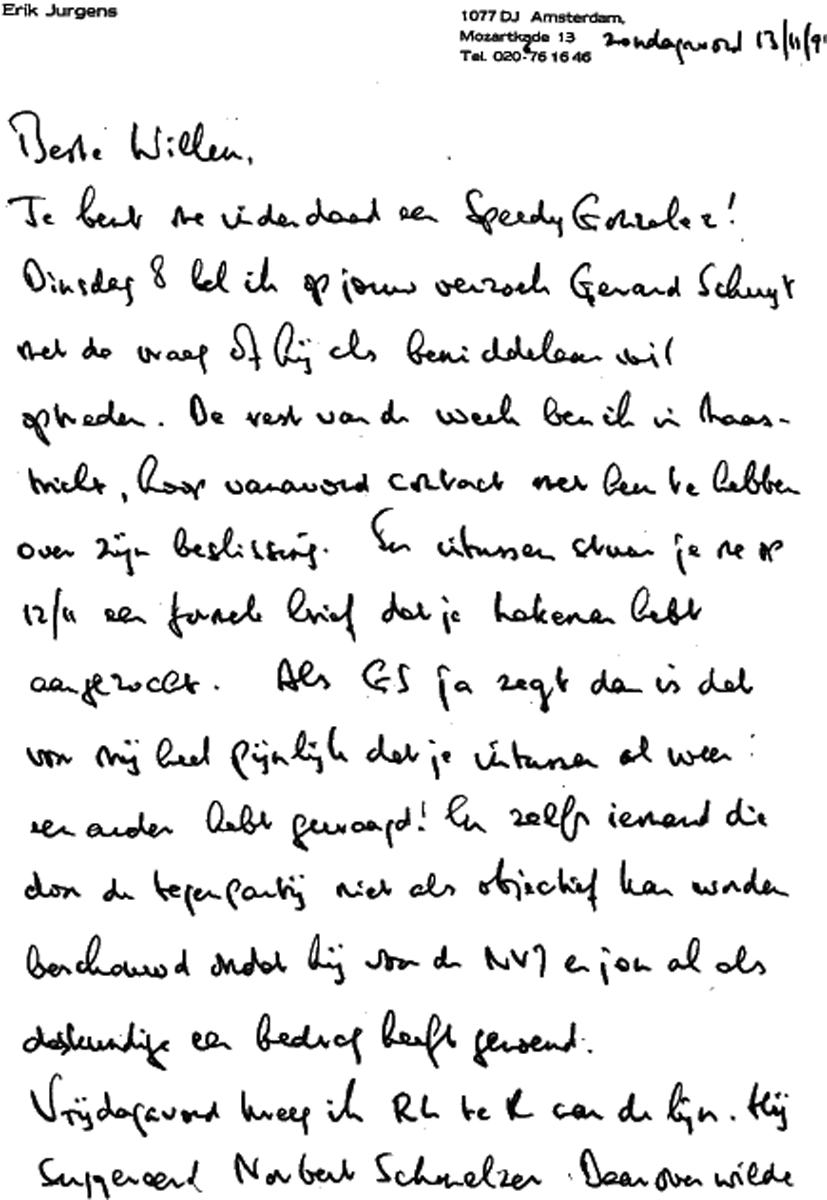 Erik Jurgens
1077 DJ Amsterdam,
Mozartkade 13 zondagavond 13/11/9
Tel. 020-76 16 46
Beste Willem,
Je bent me inderdaad een Speedy Gonzalez!
Dinsdag 8 bel ik op jouw verzoek Gerard Schuyt
met de vraag of hij als bemiddelaar wil
optreden. De rest van de week ben ik in Maas-
tricht, hoop vanavond contact met hem te hebben
over zijn beslissing. En intussen stuur je me op
12/11 een formele brief dat je hebt
aangezocht. Als GS ja zegt dan is dat
voor mij heel pijnlijk dat je intussen al weer
een ander hebt gevraagd! En zelfs iemand die
door de tegenpartij niet als objectief kan worden
beschouwd omdat hij voor de NVJ en jou al als
deskundige een bedrag heeft genoemd.
Vrijdagavond kreeg ik aan de lijn. Hij
suggereerd Norbert Schmelzer. Daarover wilde